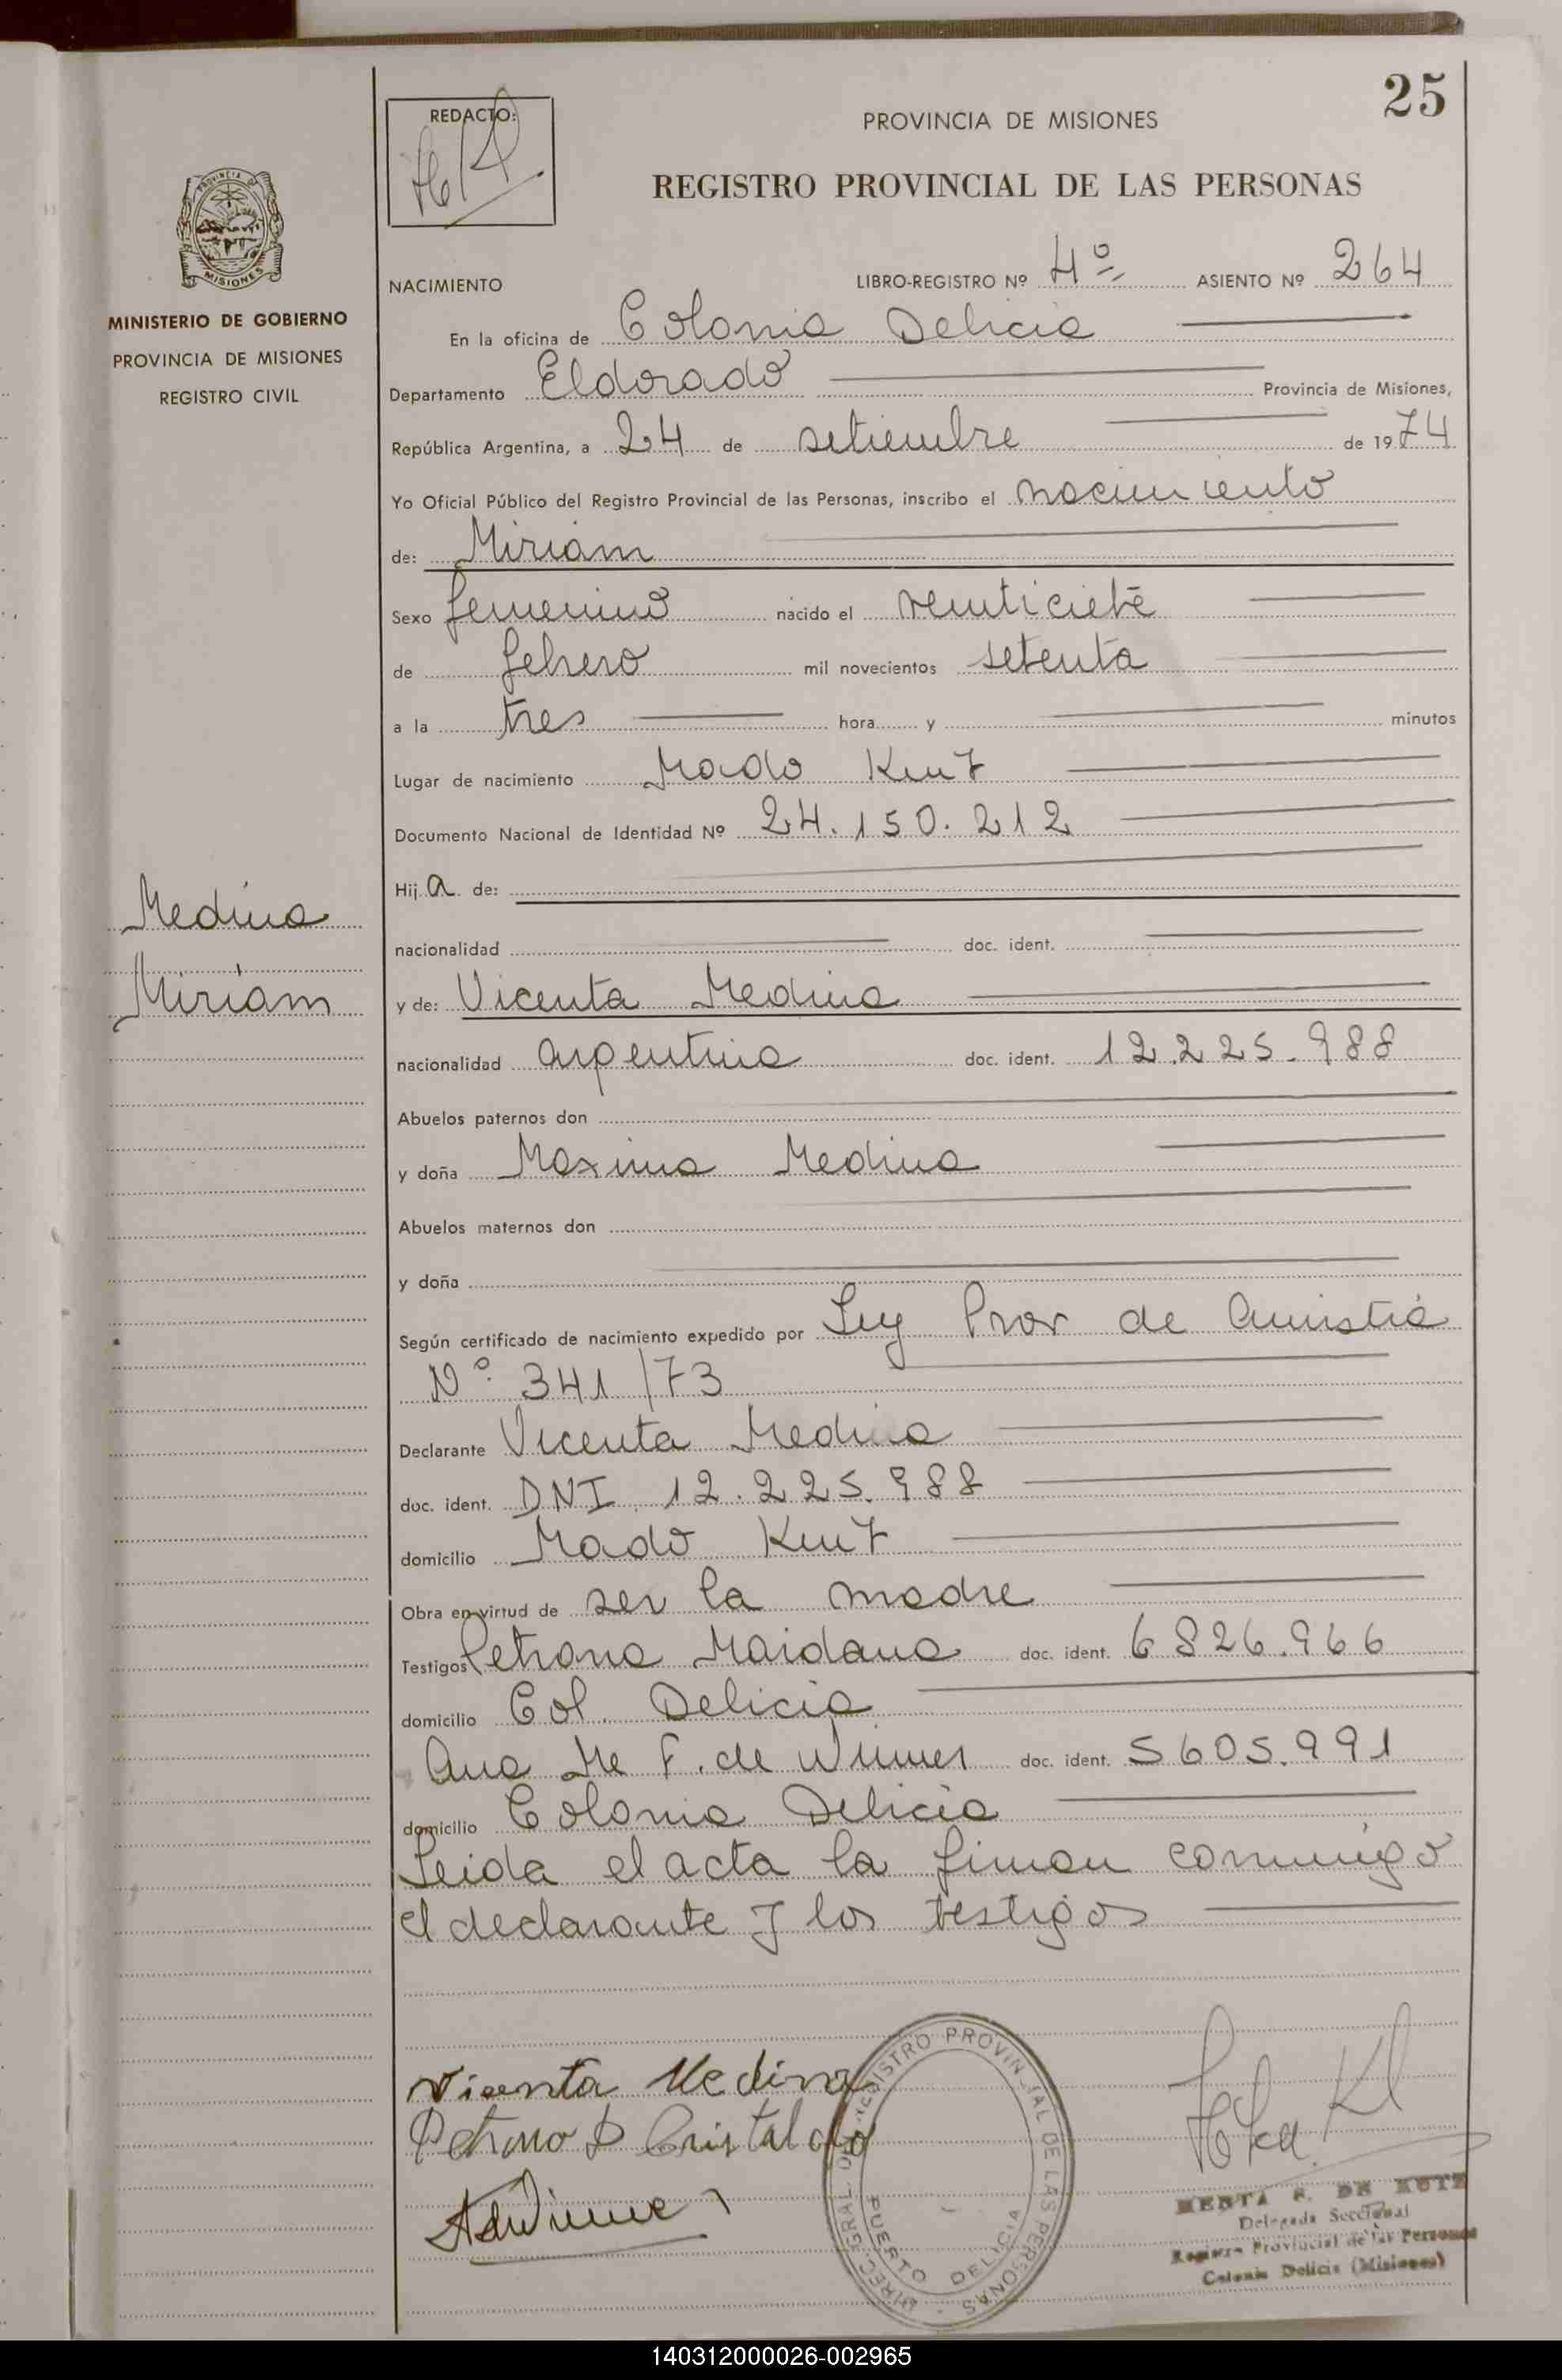 25
REDACTO:
PROVINCIA DE MISIONES
REGISTRO PROVINCIAL DE LAS PERSONAS
PROVINCIA DE
MISIONES
MINISTERIO DE GOBIERNO
PROVINCIA DE MISIONES
REGISTRO CIVIL
NACIMIENTO LIBRO-REGISTRO Nº 4º ASIENTO Nº 264
En la oficina de Colonia Delicia
Departamento Eldorado Provincia de Misiones,
República Argentina, a 24 de setiembre de 1974
Yo Oficial Público del Registro Provincial de las Personas, inscribo el nacimiento
de: Miriam
Sexo femenino nacido el veinticiete
de febrero mil novecientos setenta
a la tres hora y minutos
Lugar de nacimiento Mado
Documento Nacional de Identidad Nº 24.150.212
Hija de:
nacionalidad doc. ident.
Medina
Miriam
y de: Vicenta Medina
nacionalidad argentina doc. ident. 12.225.988
Abuelos paternos don
y doña Maxima Medina
Abuelos maternos don
y doña
Según certificado de nacimiento expedido por Ley Prov de Amistia
Nº 341/73
Declarante Vicenta Medina
doc. ident. DNI 12.225.988
domicilio Mado
Obra en virtud de ser la madre
Testigos Petrona Maidana doc. ident. 6826.966
domicilio Col. Delicia
Ana F. de doc. ident. 5605.991
domicilio Colonia Delicia
Leida el acta la firman conmigo
el declarante y los testigos
Visenta Medina
Petrona D Cristaldo
DIREC. GRAL. DEL REGISTRO PROVINCIAL DE LAS PERSONAS
PUERTO DELICIA
DE KUTZ
Delegada Seccional
Registro Provincial de las Personas
Colonia Delicia (Misiones)
140312000026-002965